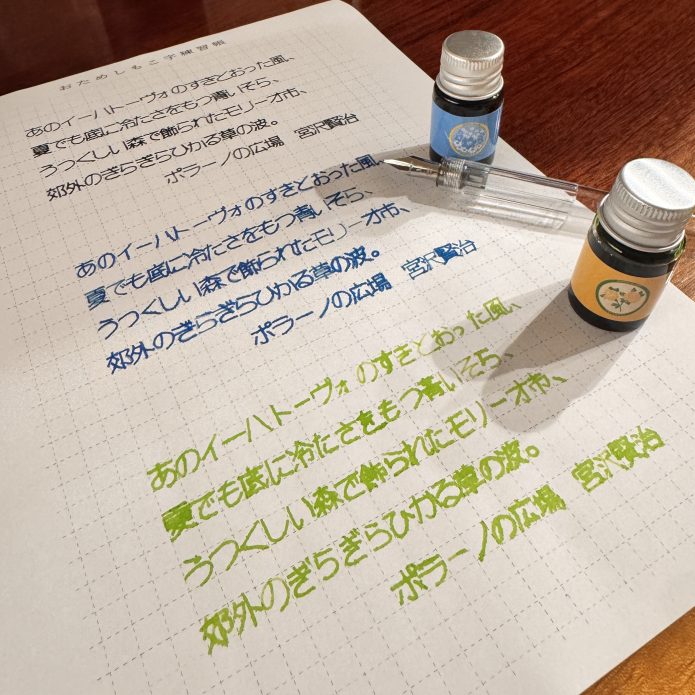 おためしもこ字練習帳
あのイーハトーヴォのすきとおった風、
夏でも底に冷たさをもつ青いそら、
うつくしい森で飾られたモリーオ市、
郊外のぎらぎらひかる草の波。
ポラーノの広場　宮沢賢治
あのイーハトーヴォのすきとおった風、
夏でも底に冷たさをもつ青いそら、
うつくしい森で飾られたモリーオ市、
郊外のぎらぎらひかる草の波。
ポラーノの広場　宮沢賢治
あのイーハトーヴォのすきとおった風、
夏でも底に冷たさをもつ青いそら、
うつくしい森で飾られたモリーオ市、
郊外のぎらぎらひかる草の波。
ポラーノの広場　宮沢賢治